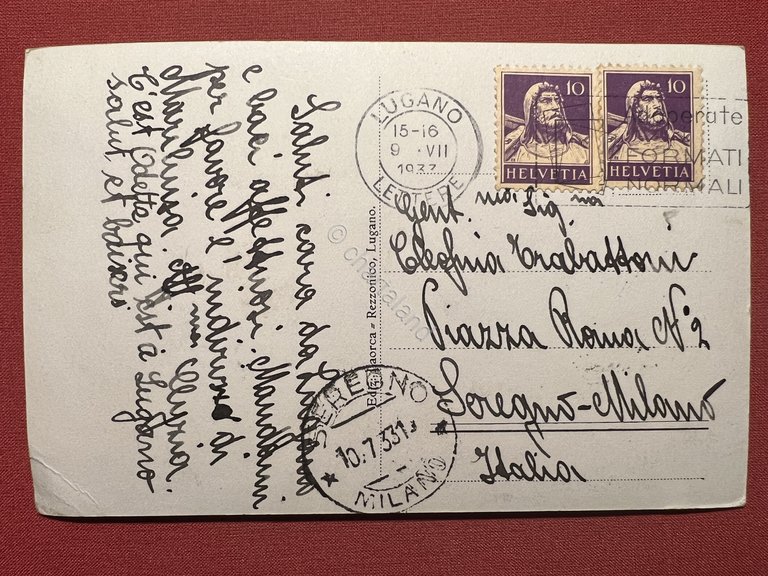 Saluti cara da Lugano
e baci affettuosi. Mandami
per favore l'indirizzo di
Mariluisa. Aff.ma
C'est Odette qui est à Lugano
salut et baisers
LUGANO
15-16
9 · VII
1933
LETTERE
10
HELVETIA
10
HELVETIA
Cooperate
FORMATI
NORMALI
Gent.ma Sig.na
Trabattoni
Piazza Roma N° 2
Seregno-Milano
Italia
Rezzonico, Lugano.
SEREGNO
10.7.33
MILANO